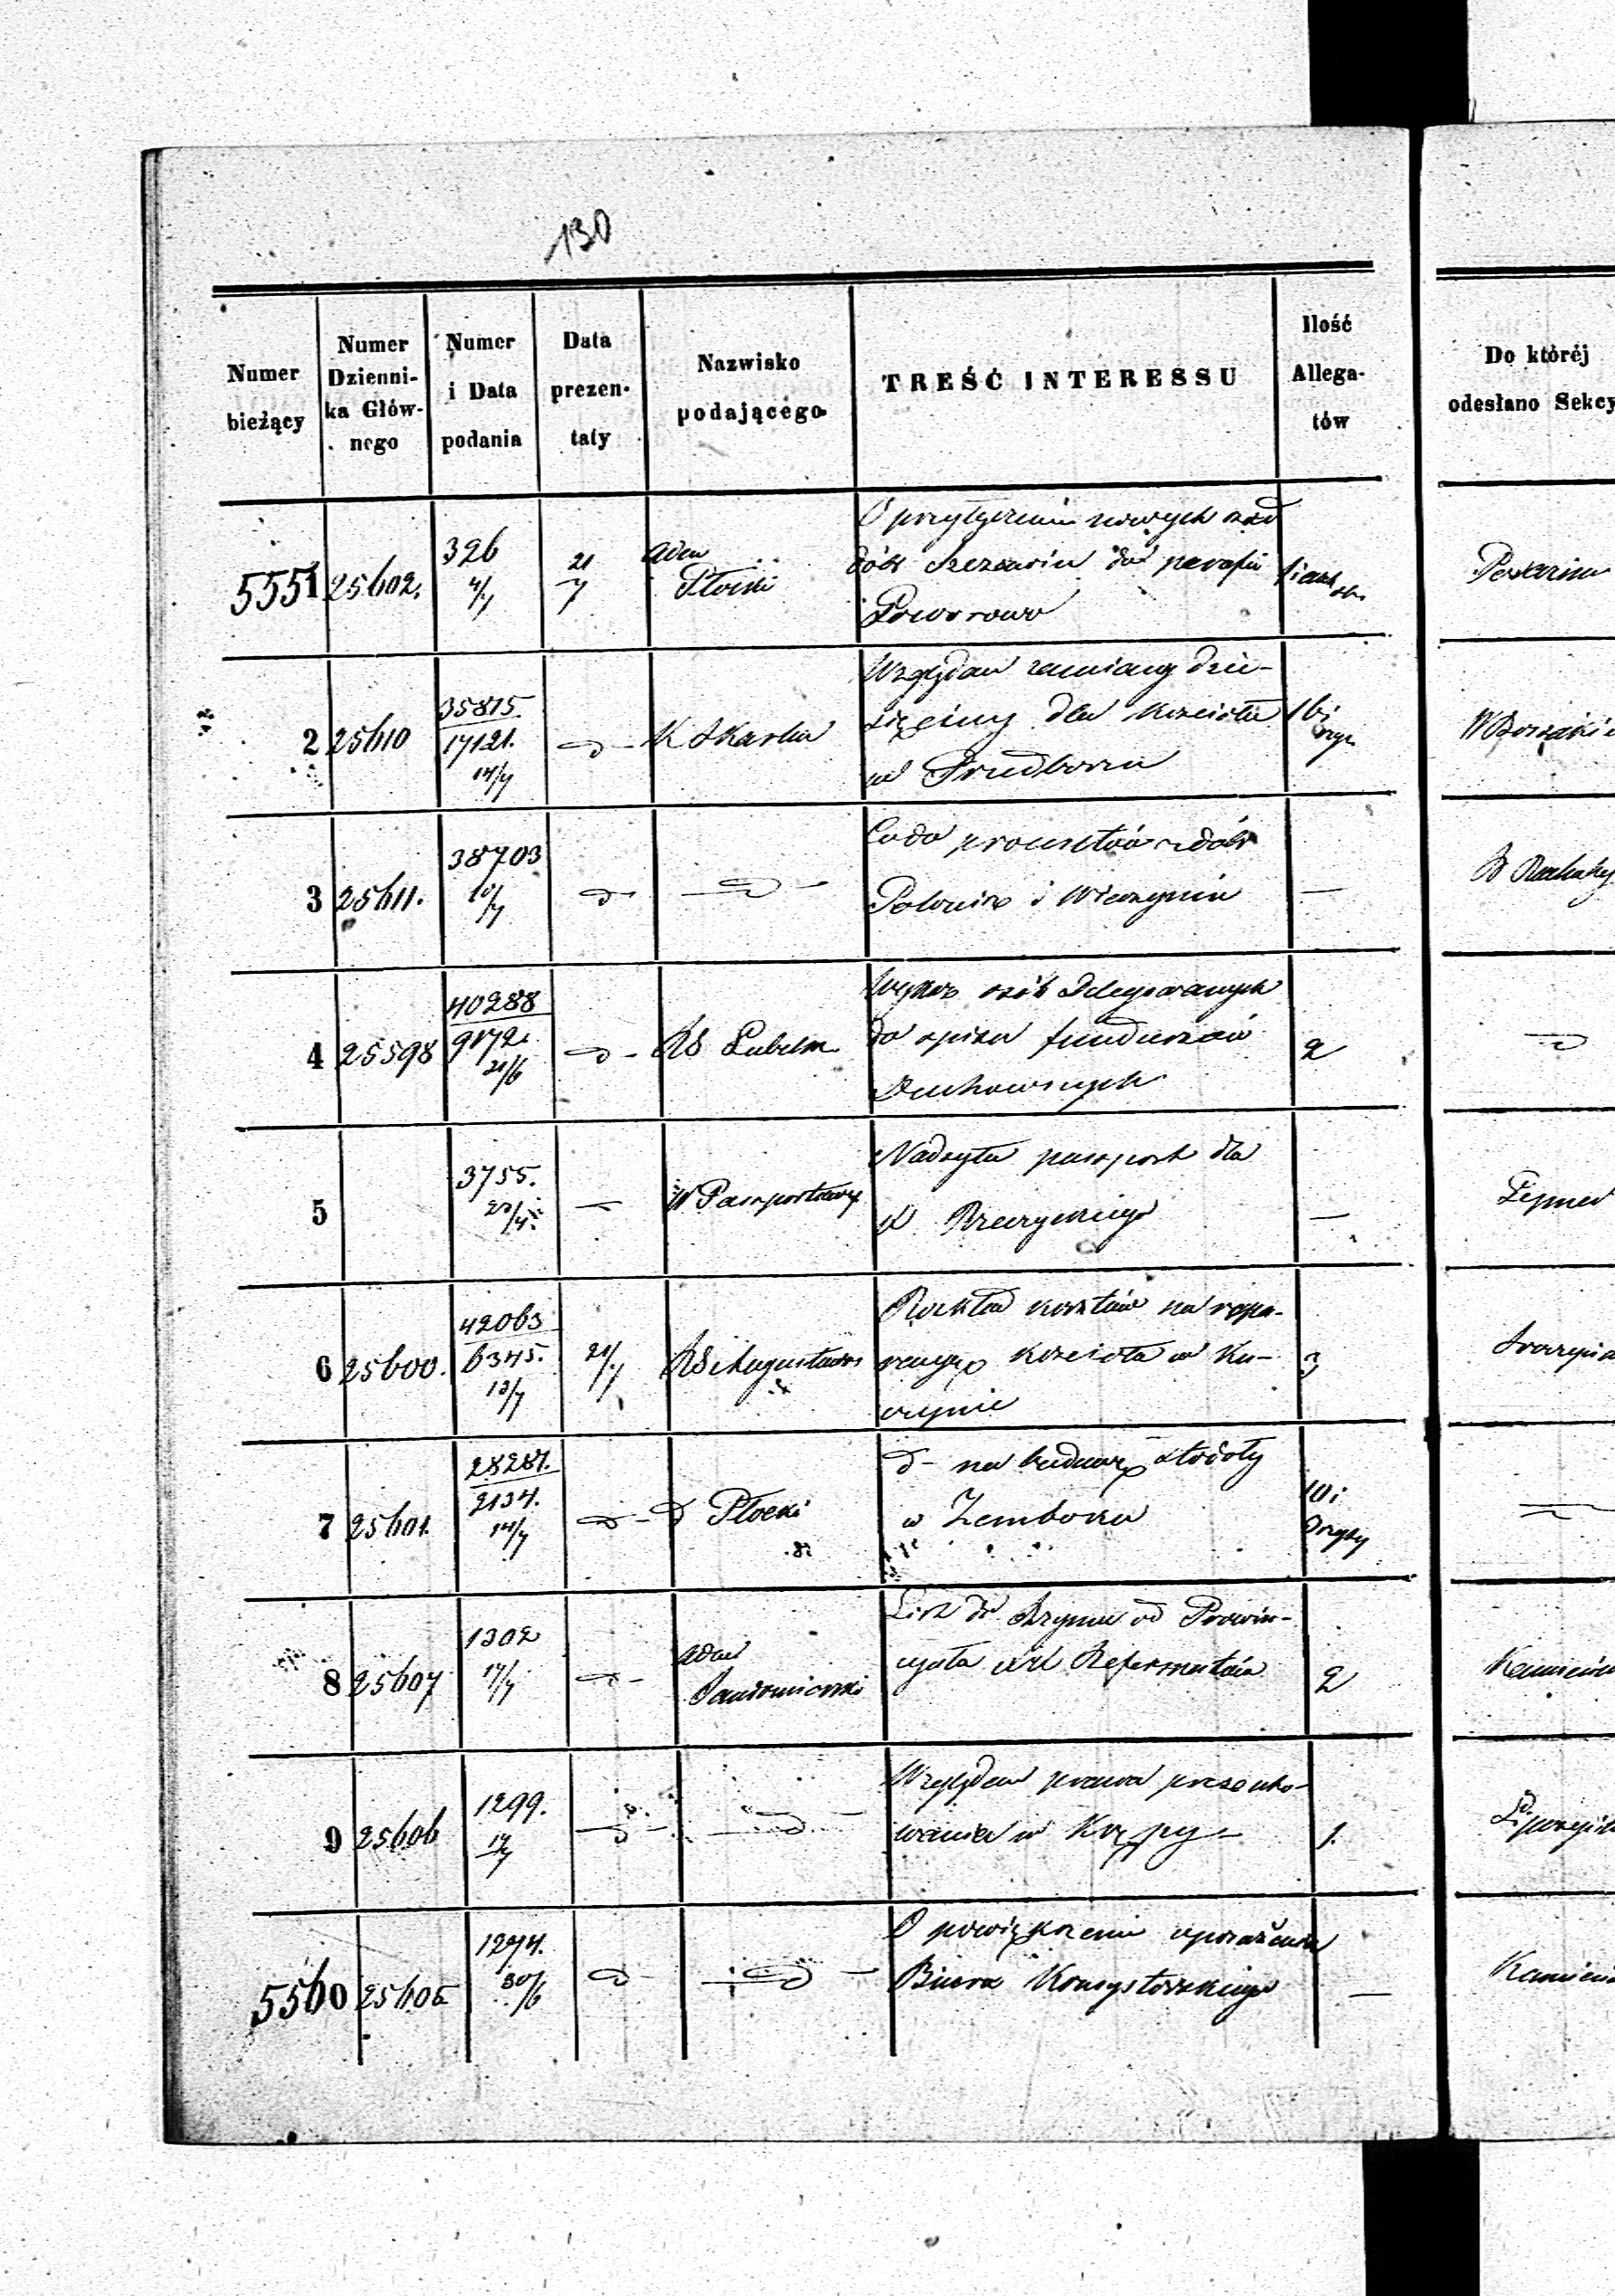 130
Numer bieżący
Numer Dzienni-ka Głów-nego
Numer i Data podania
Data prezen-taty
Nazwisko podającego
TREŚĆ INTERESSU
Ilość Allega-tów
Do któréj odesłano Sekcy
5551 25602. 326 4/7 21 7 Adm Płocki
O przyłączeniu nowych osad
dóbr Szczawin do parafii
Poworowo
2 25610 35815 17121. 14/7 d - K S Karbu
Względem zamiany dzie-
sięciny dla Kościoła
w Przedborzu
1 bi
3 25611. 38703 10/7 d - d -
Co do procentów z dóbr
i Wieczynin
—
4 25598 40288 9172. 21/6 d - RG Lubelsk.
Wykaz osób delegowanych
do spisu funduszów
Duchownych
2
d
5 3755. — W Passportowy
Nadsyła passport dla
X
—
6 25600. 42063 6345. 13/7 21/7 RG Augustows
Rozkład kosztów na repa-
racyę Kościoła w Ku-
czynie
3
7 25601. 28281. 2134. 14/7 d - d Płocki
d - na budowę stodoły
w Zembosku
8 25607 1302 17/7 d - Adm Sandomierski
List do Rzymu od Prowin-
cyała XX Reformatów
2
9 25606 1299. 17/7 d - d -
Względem prawa prezento-
wania w Krępy -
1.
5560 25605 1274. 30/6 d - d -
O powiększenie uposażenia
Biura Konsystorskiego
—